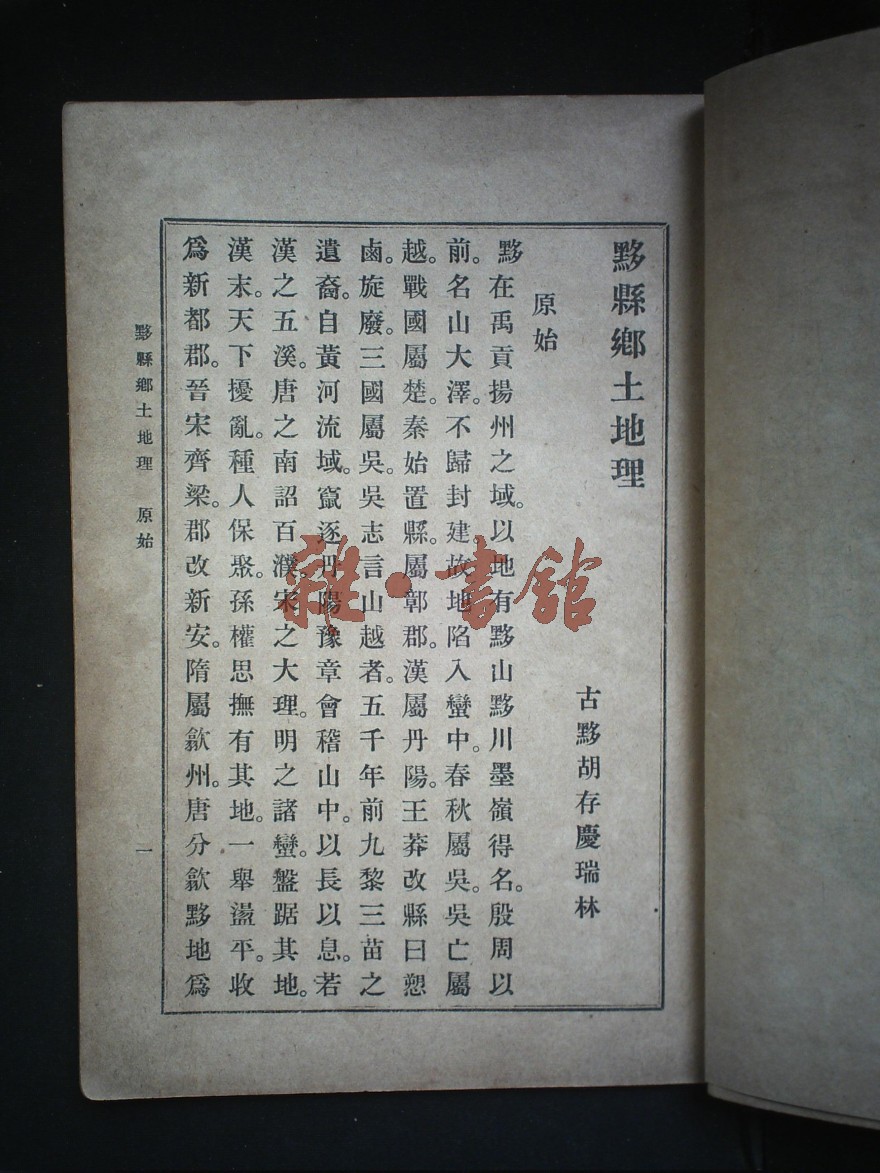 黟縣鄉土地理
古黟胡存慶瑞林
原始
黟在禹貢揚州之域。以地有黟山黟川墨嶺得名。殷周以
前。名山大澤。不歸封建。故地陷入蠻中。春秋屬吳。吳亡屬
越。戰國屬楚。秦始置縣。屬鄣郡。漢屬丹陽。王莽改縣曰愬
鹵。旋廢。三國屬吳。吳志言山越者。五千年前九黎三苗之
遺裔。自黃河流域。竄逐丹陽豫章會稽山中。以長以息。若
漢之五溪。唐之南詔百濮。宋之大理。明之諸蠻。盤踞其地。
漢末。天下擾亂。種人保聚。孫權思撫有其地。一舉盪平。收
爲新都郡。晉宋齊梁。郡改新安。隋屬歙州。唐分歙黟地爲
黟縣鄉土地理 原始 一
雜·書館